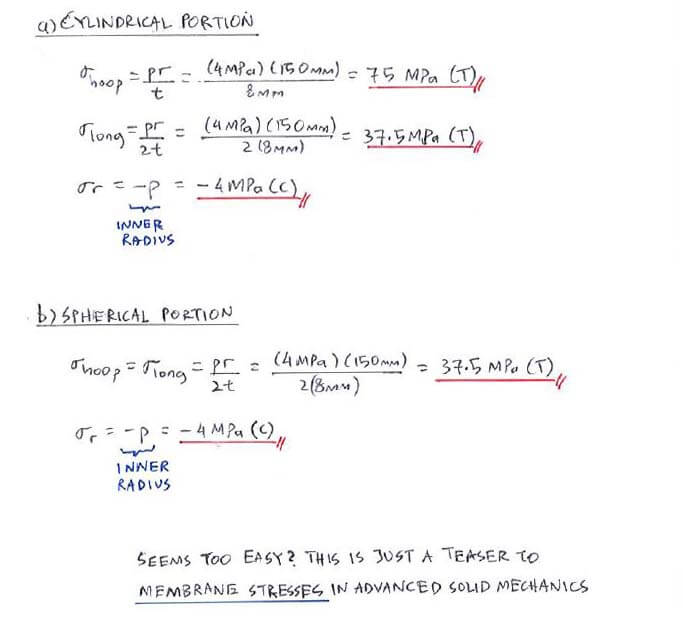 a) CYLINDRICAL PORTION
σhoop = pr/t = (4MPa)(150MM)/8MM = 75 MPa (T)
σlong = pr/2t = (4MPa)(150MM)/2(8MM) = 37.5MPa (T)
σr = -p = -4MPa (C)
INNER
RADIUS
b) SPHERICAL PORTION
σhoop = σlong = pr/2t = (4MPa)(150MM)/2(8MM) = 37.5 MPa (T)
σr = -p = -4MPa (C)
INNER
RADIUS
SEEMS TOO EASY? THIS IS JUST A TEASER TO
MEMBRANE STRESSES IN ADVANCED SOLID MECHANICS